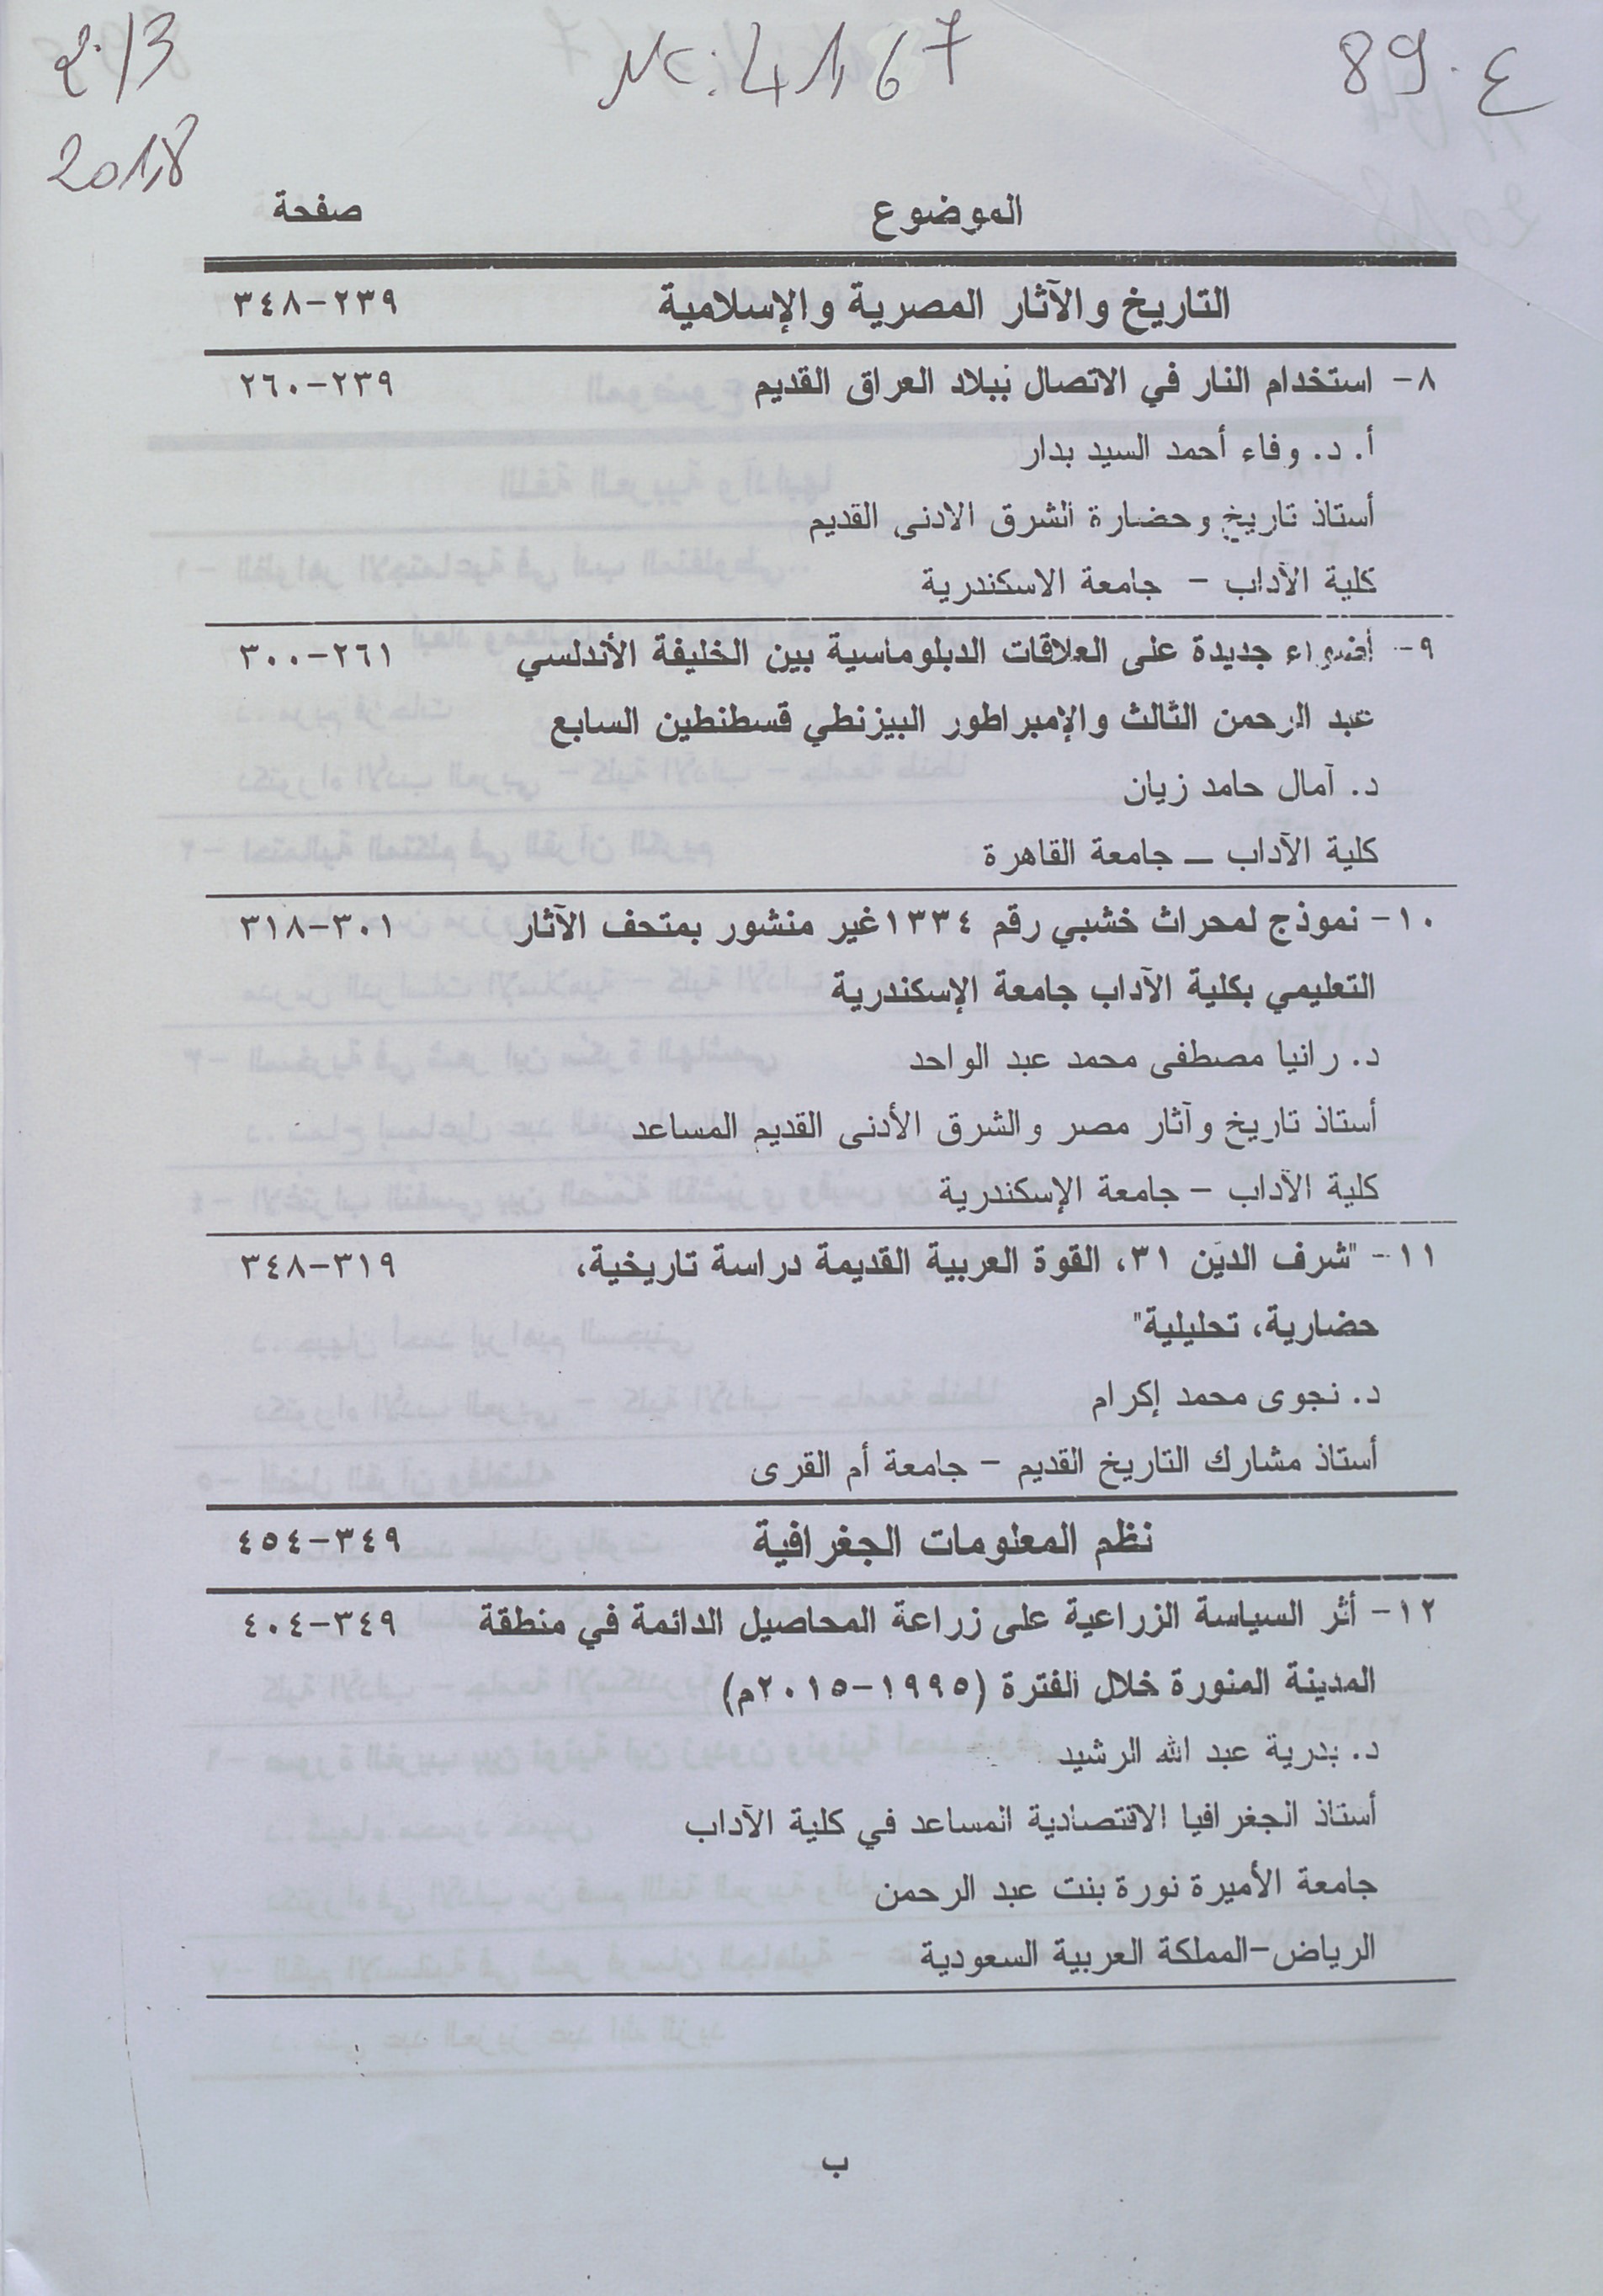 89. ع
Nc: 41,67
2./3
2018
الموضوع صفحة
التاريخ والآثار المصرية والإسلامية ٢٣٩-٣٤٨
٨- استخدام النار في الاتصال ببلاد العراق القديم ٢٣٩-٢٦٠
أ. د. وفاء أحمد السيد بدار
أستاذ تاريخ وحضارة الشرق الادنى القديم
كلية الآداب - جامعة الاسكندرية
٩- أضواء جديدة على العلاقات الدبلوماسية بين الخليفة الأندلسي ٢٦١-٣٠٠
عبد الرحمن الثالث والإمبراطور البيزنطي قسطنطين السابع
د. آمال حامد زيان
كلية الآداب ـ جامعة القاهرة
١٠- نموذج لمحراث خشبي رقم ١٣٣٤ غير منشور بمتحف الآثار ٣٠١-٣١٨
التعليمي بكلية الآداب جامعة الإسكندرية
د. رانيا مصطفى محمد عبد الواحد
أستاذ تاريخ وآثار مصر والشرق الأدنى القديم المساعد
كلية الآداب - جامعة الإسكندرية
١١- "شرف الدين ٣١، القوة العربية القديمة دراسة تاريخية، ٣١٩-٣٤٨
حضارية، تحليلية"
د. نجوى محمد إكرام
أستاذ مشارك التاريخ القديم - جامعة أم القرى
نظم المعلومات الجغرافية ٣٤٩-٤٥٤
١٢- أثر السياسة الزراعية على زراعة المحاصيل الدائمة في منطقة ٣٤٩-٤٠٤
المدينة المنورة خلال الفترة (١٩٩٥-٢٠١٥م)
د. بدرية عبد الله الرشيد
أستاذ الجغرافيا الاقتصادية المساعد في كلية الآداب
جامعة الأميرة نورة بنت عبد الرحمن
الرياض-المملكة العربية السعودية
ب